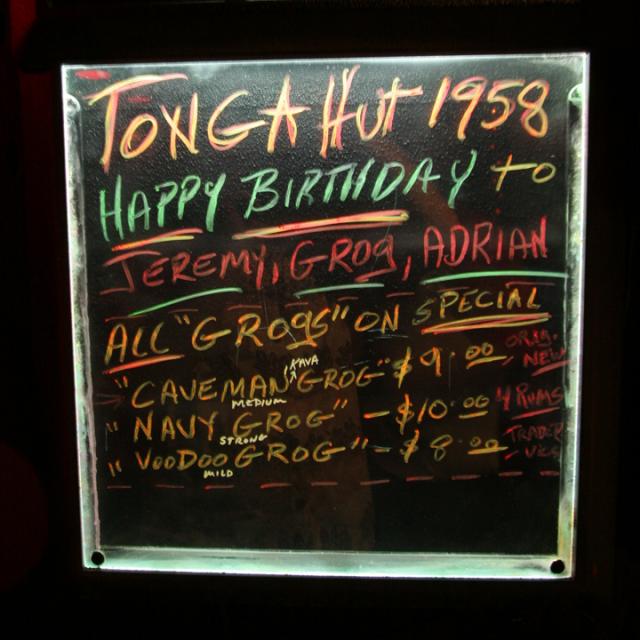 TONGA HUT 1958
HAPPY BIRTHDAY to
JEREMY, GROG, ADRIAN
ALL "GROGS" ON SPECIAL
"CAVEMAN KAVA GROG" $9.00 - ORIG. NEW
MEDIUM
"NAVY GROG" - $10.00 4 RUMS
STRONG
"VOODOO GROG" - $8.00 TRADER VICS
MILD